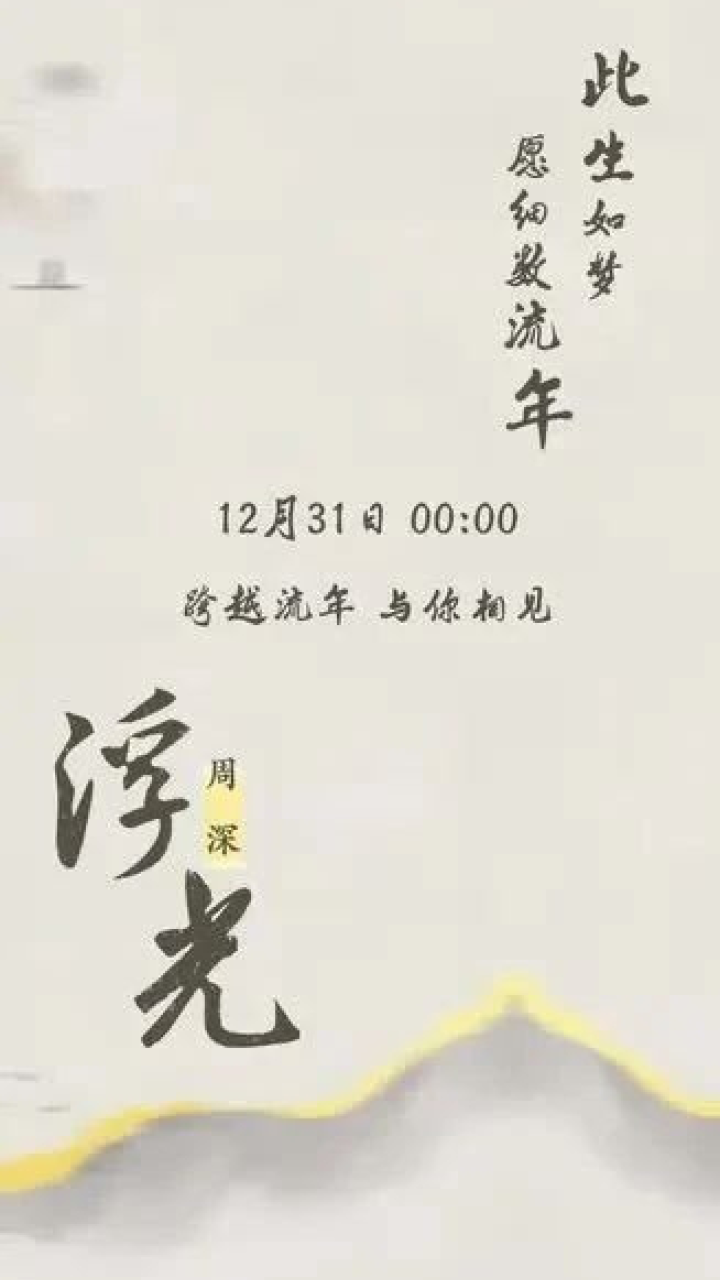 此生如梦
愿细数流年
12月31日 00:00
跨越流年 与你相见
浮光
周深